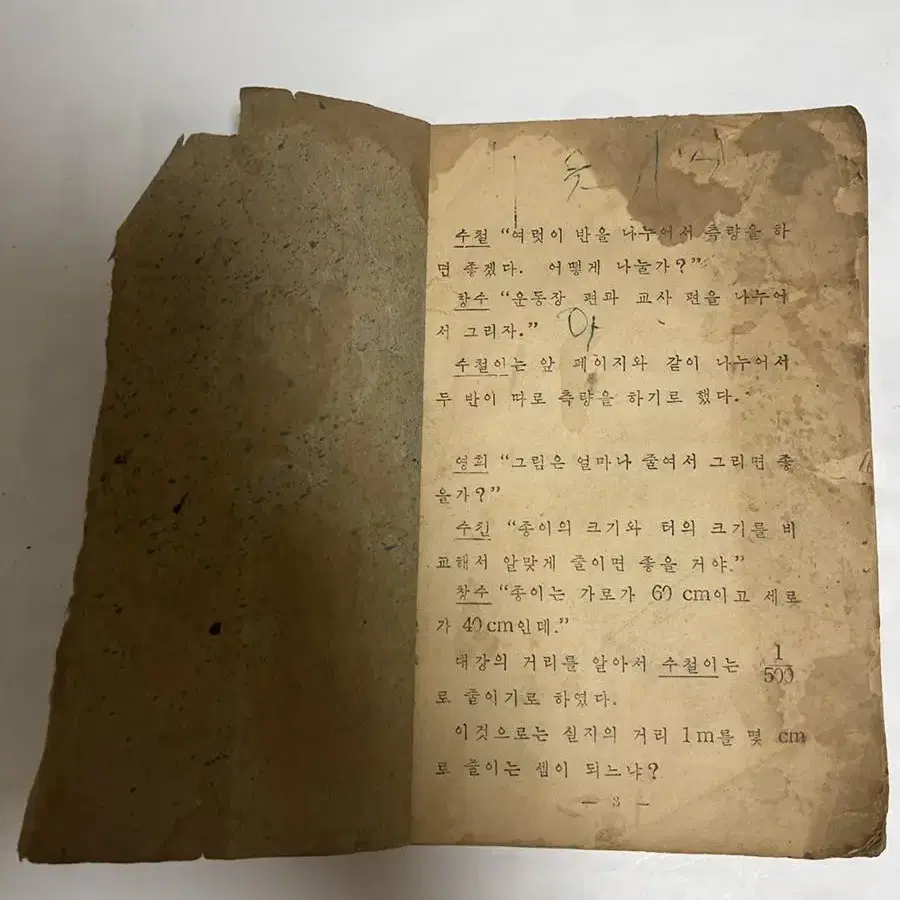 수철 “여럿이 반을 나누어서 측량을 하
면 좋겠다. 어떻게 나눌가?”
창수 “운동장 편과 교사 편을 나누어
서 그리자.”
아
수철이는 앞 페이지와 같이 나누어서
두 반이 따로 측량을 하기로 했다.
영희 “그림은 얼마나 줄여서 그리면 좋
을가?”
수철 “종이의 크기와 터의 크기를 비
교해서 알맞게 줄이면 좋을 거야.”
창수 “종이는 가로가 60 cm이고 세로
가 40 cm인데.”
대강의 거리를 알아서 수철이는 1/500
로 줄이기로 하였다.
이것으로는 실지의 거리 1m를 몇 cm
로 줄이는 셈이 되느냐?
— 3 —